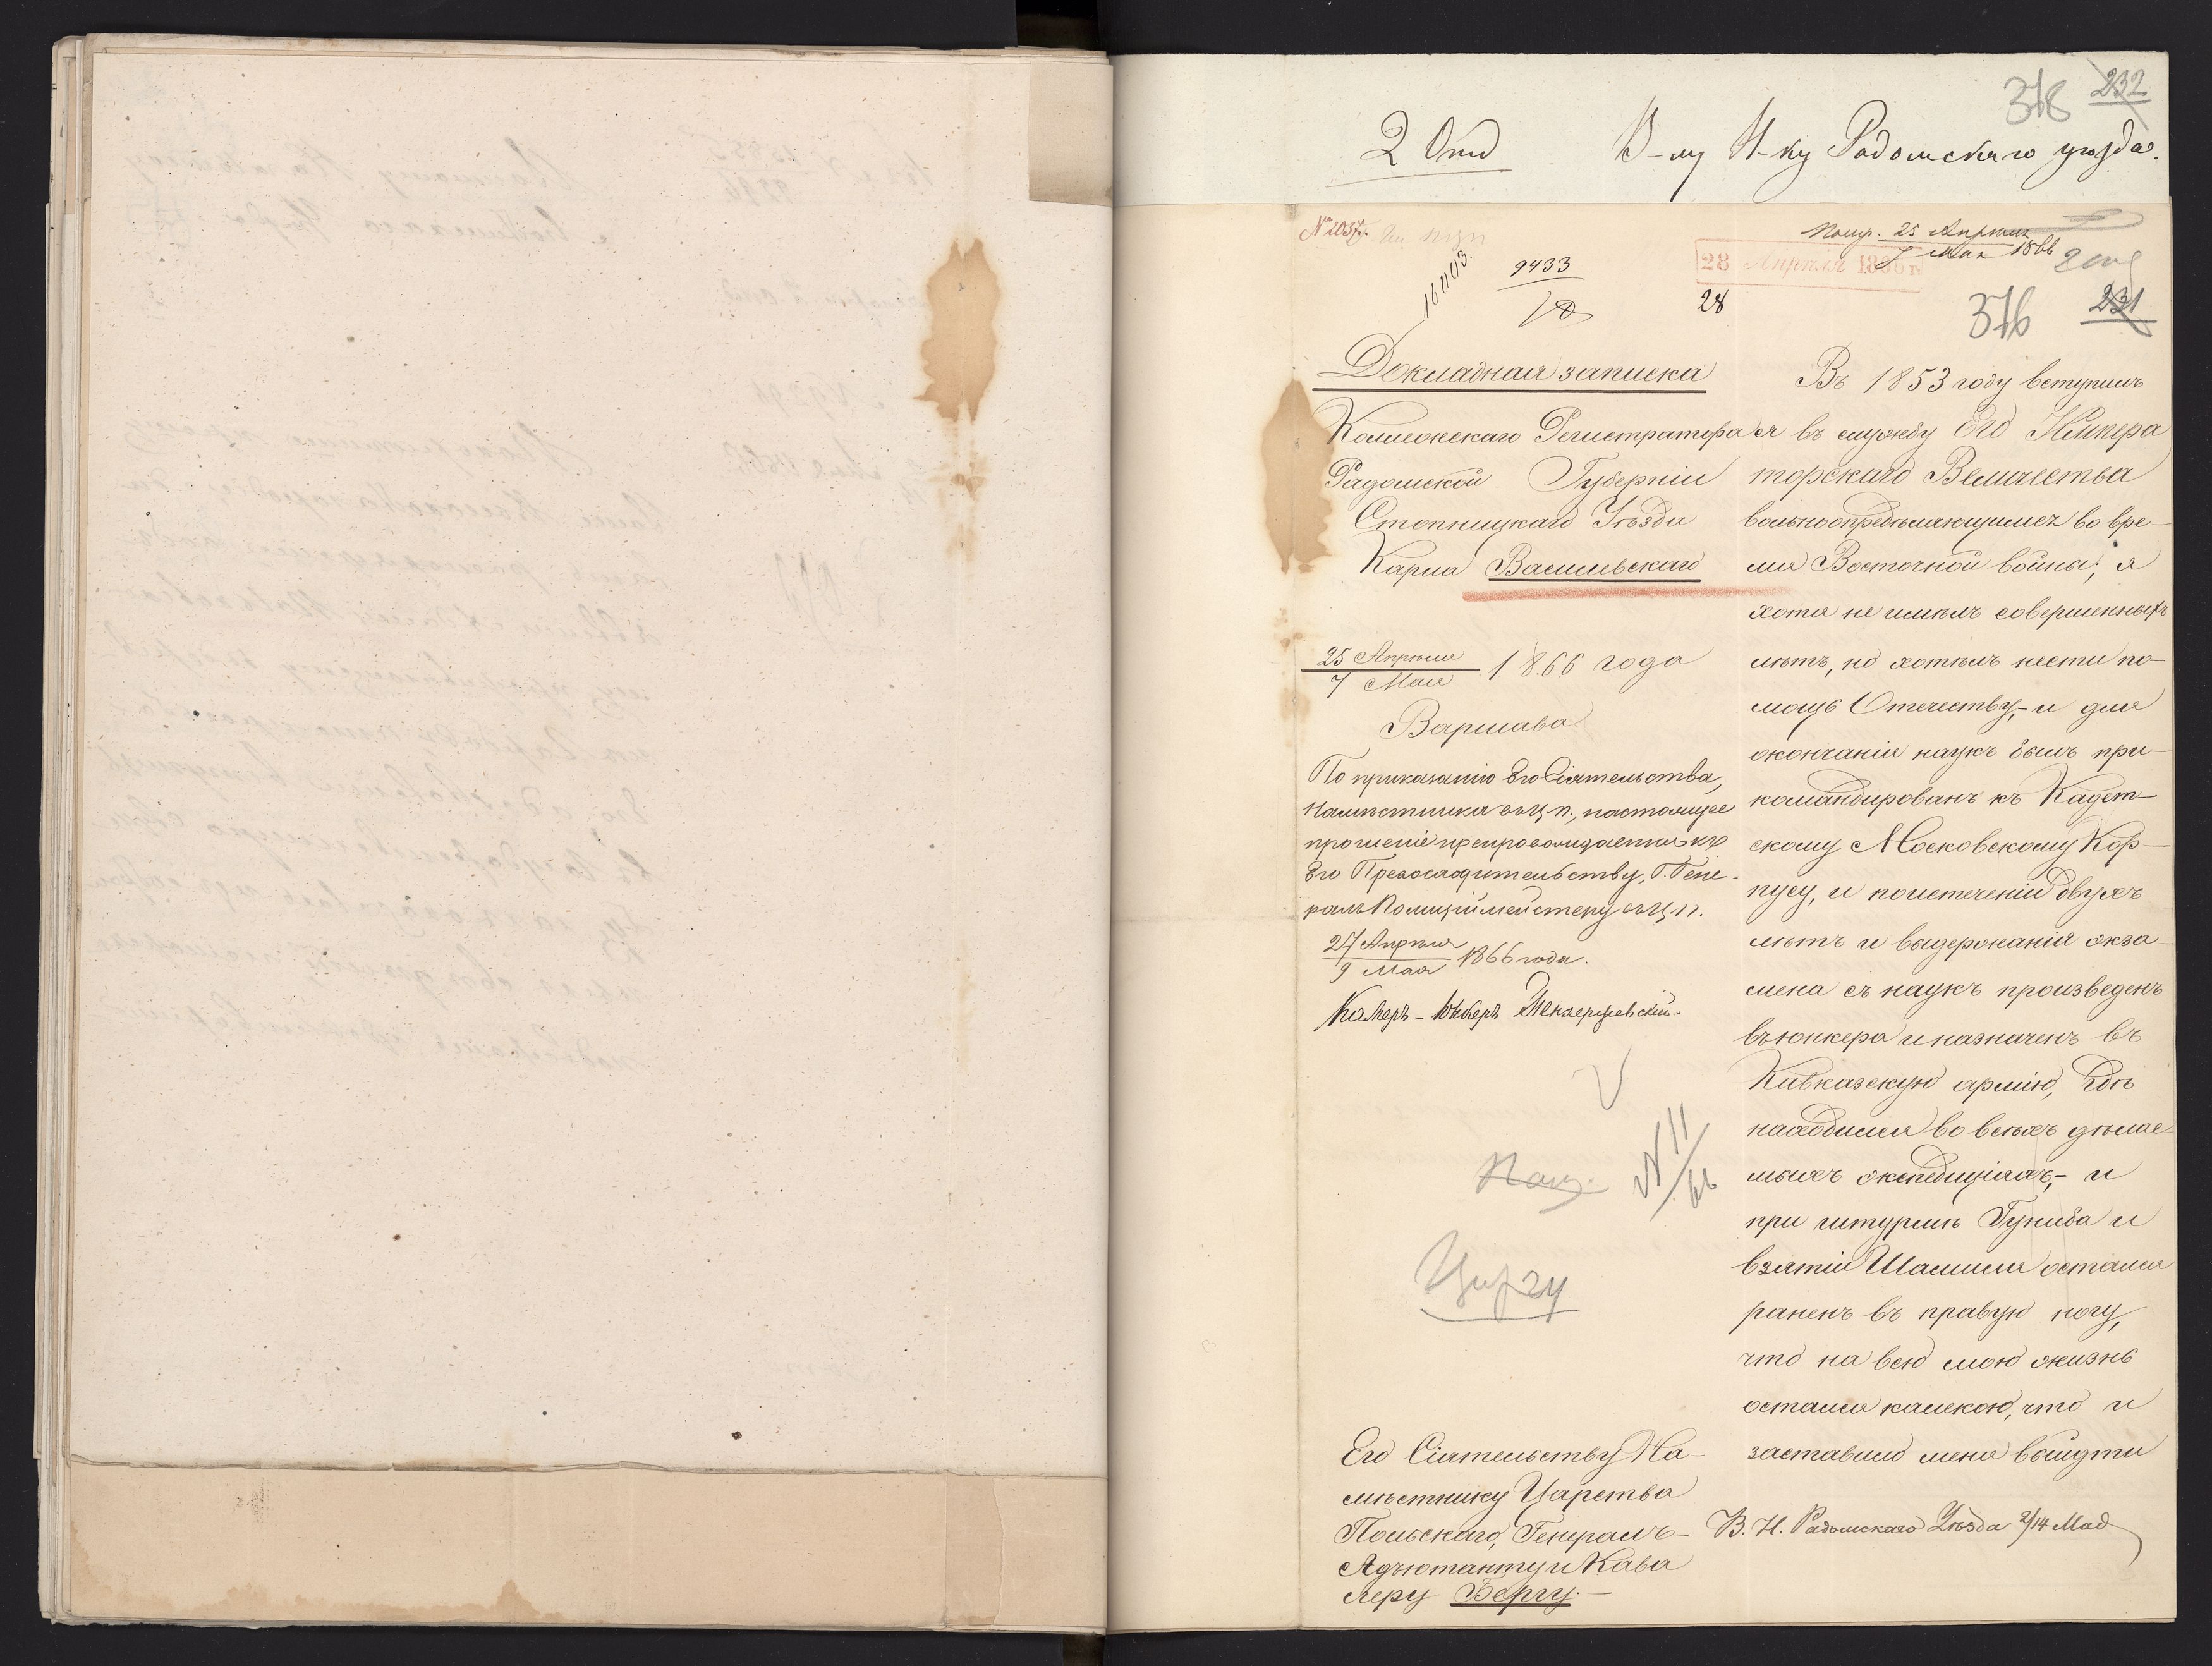 232
318
2 Отд
В-му Н-ку Радомскаго уѣзда.
№ 2037.
Получ. 25 Апрѣля
7 Мая 1866
28 Апрѣля 1866
2 отд
16003
9433
28
376
231
Докладная записка
Коллежскаго Регистратора
Радомской Губерніи
Стопницкаго Уѣзда
Карла Василевскаго
25 Апрѣля
7 Мая
1866 года
Варшава
По приказанію Его Сіятельства,
Намѣстника въ Ц. П., настоящее
прошеніе препровождается къ
Его Превосходительству, Г. Гене-
ралъ Полиціймейстеру въ Ц. П.
27 Апрѣля
9 Мая
1866 года.
Камеръ-Юнкеръ
№ 11/66
Его Сіятельству На-
мѣстнику Царства
Польскаго, Генералъ-
Адъютанту и Кава
леру Бергу.
Въ 1853 году вступилъ
ся въ службу Его Импера
торскаго Величества
вольноопредѣляющимся во вре-
мя Восточной войны; я
хотя не имѣлъ совершенныхъ
лѣтъ, но хотѣлъ нести по-
мощь Отечеству,- и для
окончанія наукъ былъ при-
командированъ къ Кадет-
скому Московскому Кор-
пусу, и поистеченіи двухъ
лѣтъ и выдержанія экза-
мена съ наукъ произведенъ
въ юнкера и назначенъ въ
Кавказскую армію, гдѣ
находился во всѣхъ дѣлае
мыхъ экспедиціяхъ,- и
при штурмѣ Гуниба и
взятіи Шамиля остался
раненъ въ правую ногу,
что на всю мою жизнь
остался калекою, что и
заставило меня выйдти
В. Н. Радомскаго Уѣзда 2/14 Мая